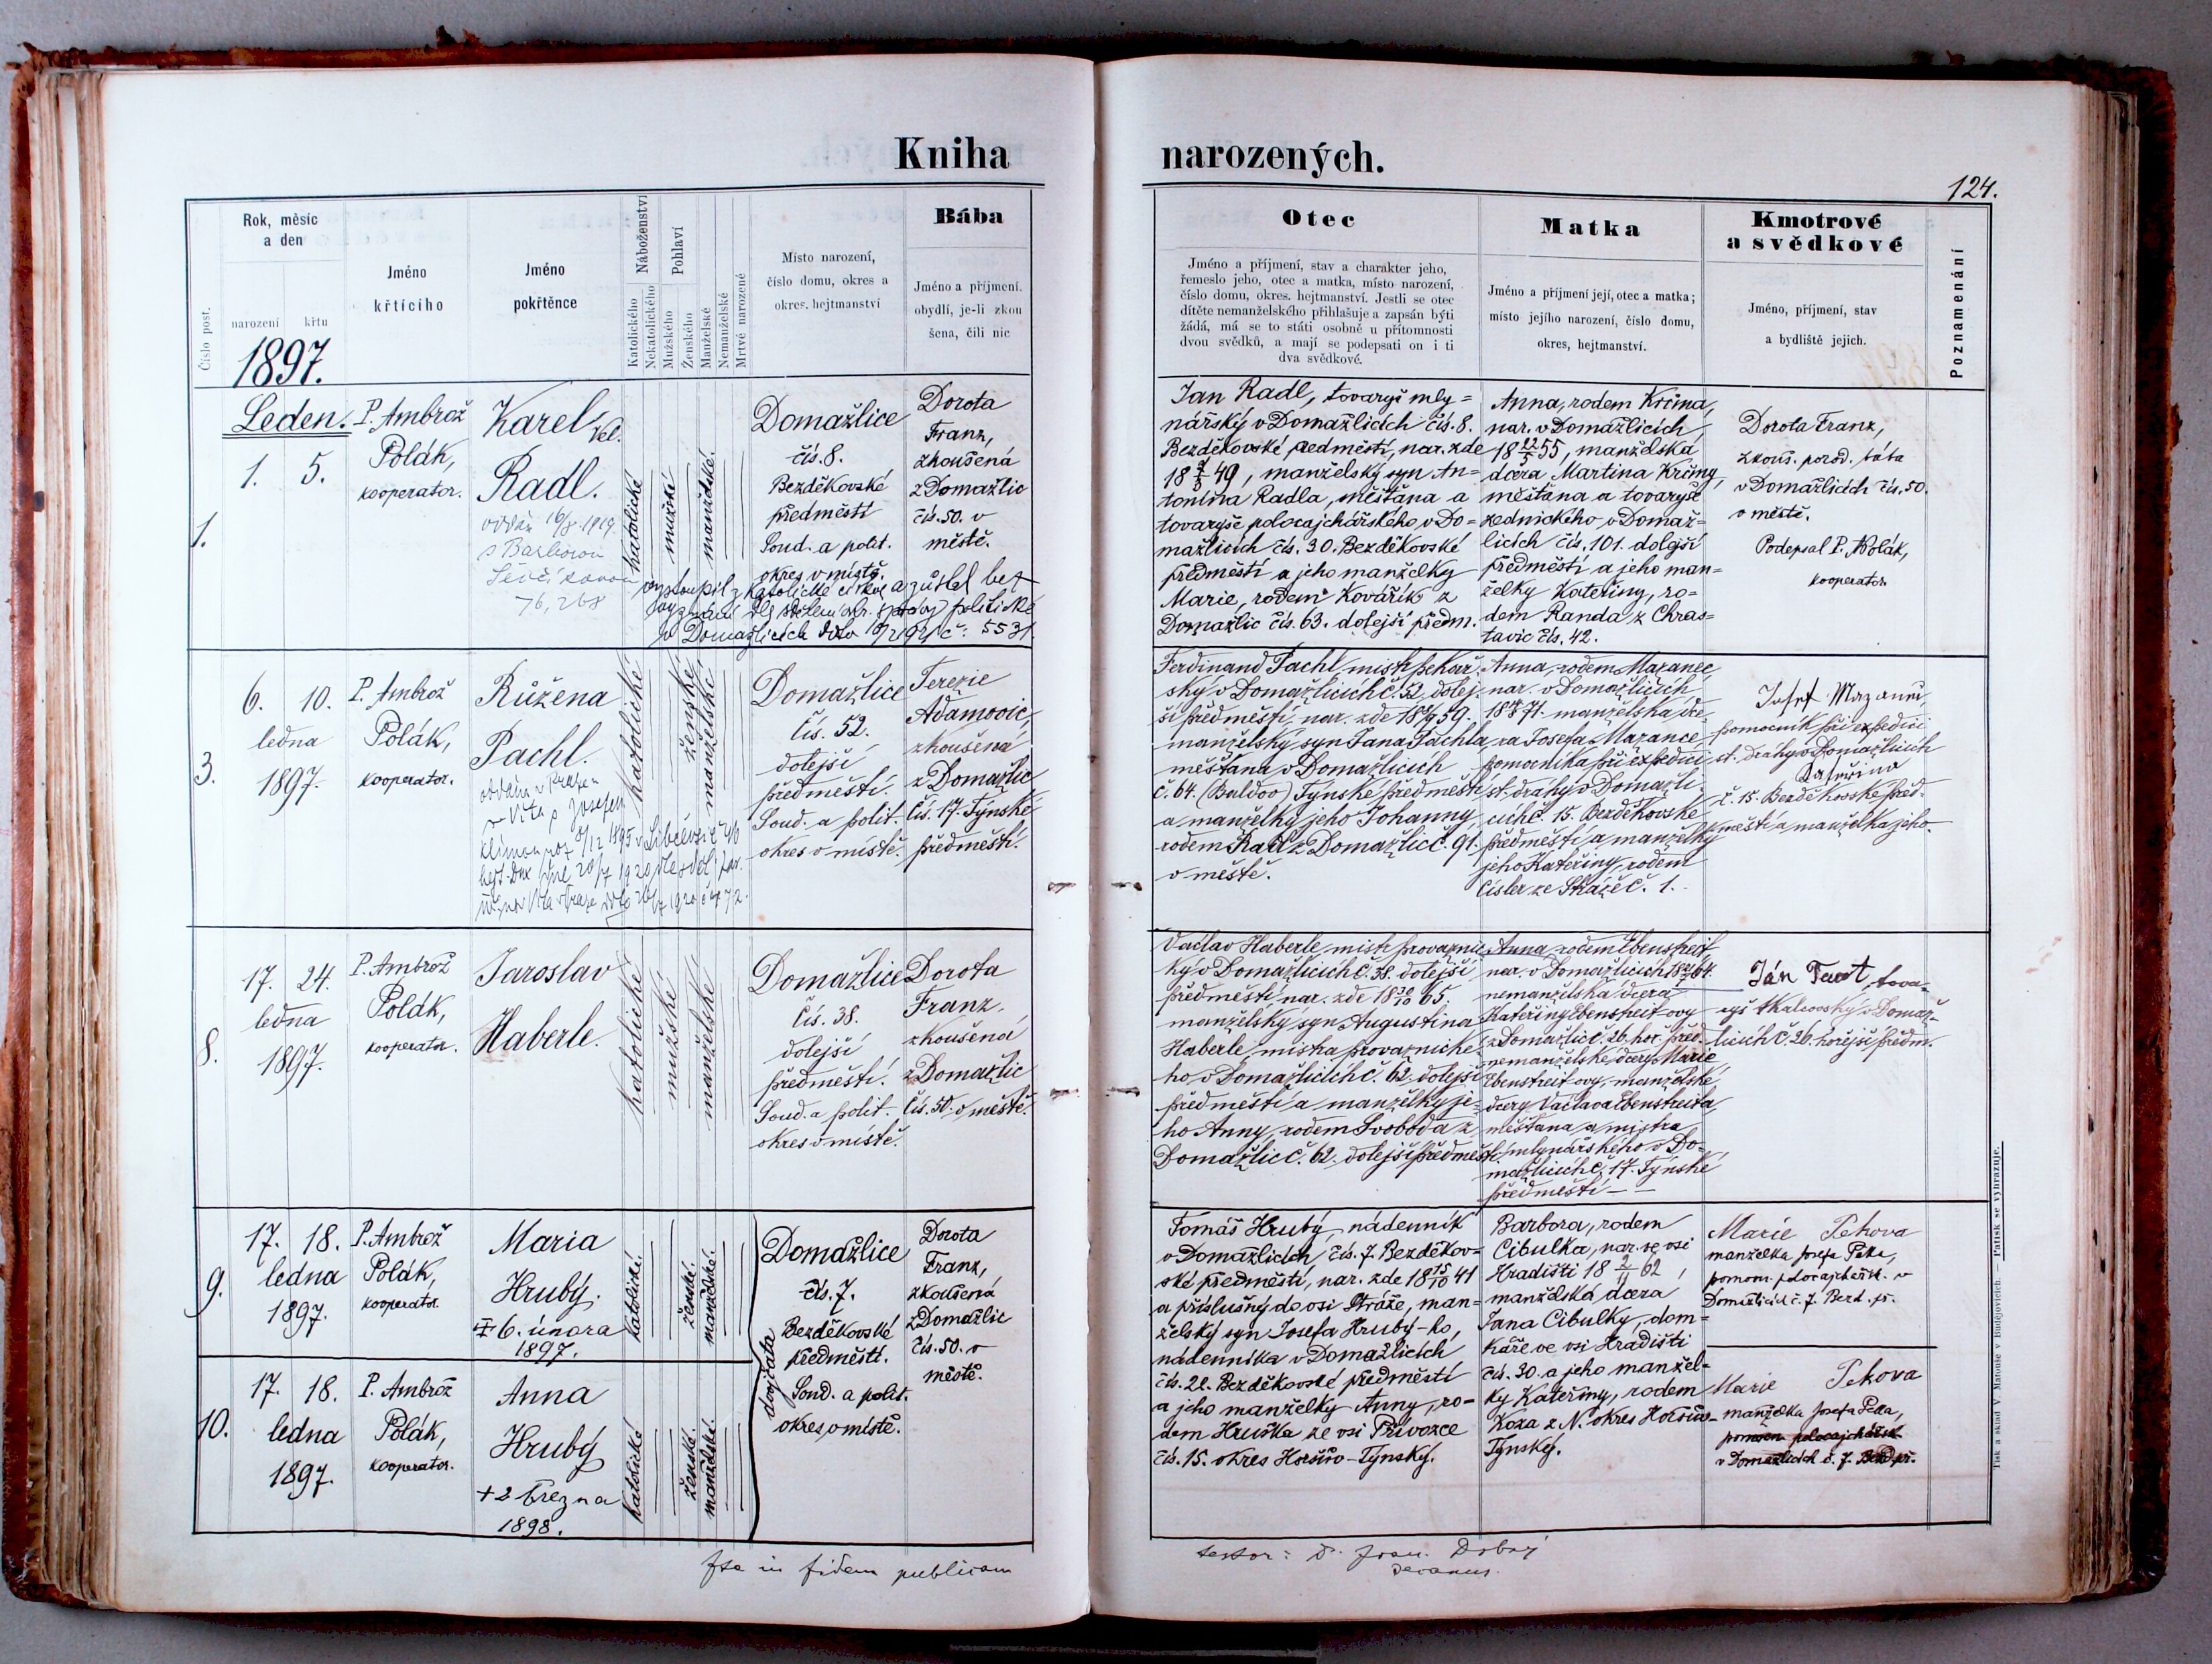 Kniha
narozených.
124.
Číslo post.
Rok, měsíc
a den
narození
křtu
1897.
Jméno
křtícího
Jméno
pokřtěnce
Náboženství
Katolického
Nekatolického
Pohlaví
Mužského
Ženského
Manželské
Nemanželské
Mrtvě narozené
Místo narození,
číslo domu, okres a
okres. hejtmanství
Bába
Jméno a příjmení.
obydlí, je-li zkou
šena, čili nic
Otec
Jméno a příjmení, stav a charakter jeho,
řemeslo jeho, otec a matka, místo narození,
číslo domu, okres. hejtmanství. Jestli se otec
dítěte nemanželského přihlašuje a zapsán býti
žádá, má se to státi osobně u přítomnosti
dvou svědků, a mají se podepsati on i ti
dva svědkové.
Matka
Jméno a příjmení její, otec a matka;
místo jejího narození, číslo domu,
okres, hejtmanství.
Kmotrové
a svědkové
Jméno, příjmení, stav
a bydliště jejich.
Poznamenání
Leden.
1. 5.
1.
P. Ambrož
Polák,
kooperator.
Karel
Radl.
oddán 16/8 1919
s Barborou
76, 268
katolické
mužské
manželské.
Domažlice
čís. 8.
Bezděkovské
předměstí
Soud. a polit.
okres v místě.
Dorota
Franz,
zkoušená
z Domažlic
čís. 50. v
městě.
vystoupil z katolické církve a zůstal bez
vyznání dle sdělení okr. správy politické
v Domažlicích č: 5531.
Jan Radl, tovaryš mly=
nářský v Domažlicích čís. 8.
Bezděkovské předměstí, nar. zde
49, manželský syn An=
tonína Radla, měšťana a
tovaryše polocajchářského v Do=
mažlicích čís. 30. Bezděkovské
předměstí a jeho manželky
Marie, rodem Kovářík z
Domažlic čís. 63. dolejší předm.
Anna, rodem Krčma,
nar. v Domažlicích
18 22/5 55, manželská
dcera Martina Krčmy,
měšťana a tovaryše
zednického v Domaž=
licích čís. 101. dolejší
předměstí a jeho man=
želky Kateřiny, ro=
dem Randa z Chras=
tavic čís. 42.
Dorota Franz,
zkouš. porod. bába
v Domažlicích čís. 50.
v městě.
Podepsal P. Polák,
kooperator
3.
6. 10.
ledna
1897.
P. Ambrož
Polák,
kooperator.
Růžena
Pachl.
katolické
ženské
manželské
Domažlice
Čís. 52.
dolejší
předměstí.
Soud. a polit.
okres v místě.
Terezie
Adamovic,
zkoušená
z Domažlic
čís. 17. Týnské
předměstí.
Ferdinand Pachl, mistr pekař=
ský v Domažlicích č. 52. dolej=
ší předměstí, nar. zde 59.
manželský syn Jana Pachla
měšťana v Domažlicích
č. 64. (Buldov) Týnské předměstí
a manželky jeho Johanny
rodem z Domažlic č. 91.
v městě.
Anna, rodem Mazanec,
nar. v Domažlicích
71. manželská dce=
ra Josefa Mazance
pomocníka při expedici
st. dráhy v Domažli=
cích č. 15. Bezděkovské
předměstí a manželky
jeho Kateřiny, rodem
Císler ze Stráže č. 1.
Josef Mazanec,
pomocník při expedici
st. dráhy v Domažlicích
Kateřina
č. 15. Bezděkovské před=
městí a manželka jeho.
8.
17. 24.
ledna
1897.
P. Ambrož
Polák,
kooperator.
Jaroslav
Haberle.
katolické
mužské
manželské
Domažlice
Čís. 38.
dolejší
předměstí.
Soud. a polit.
okres v místě.
Dorota
Franz.
zkoušená
z Domažlic
čís. 50. v městě.
Václav Haberle, mistr provaznic=
ký v Domažlicích č. 38. dolejší
předměstí nar. zde 18 30/10 65.
manželský syn Augustina
Haberle, mistra provaznické=
ho, v Domažlicích č. 62. dolejší
předměstí a manželky je=
ho Anny, rodem Svoboda z
Domažlic č. 62. dolejší předměstí
Anna, rodem Ebenstreit,
nar. v Domažlicích 64.
nemanželská dcera
Kateřiny Ebenstreit-ovy
z Domažlic č. 26. hoř. před.
nemanželské dcery Marie
Ebenstreit-ovy, manželské
dcery Václava Ebenstreita,
měšťana a mistra
mlynářského v Do=
mažlicích č. 17. Týnské
předměstí
Ján, tova=
ryš tkalcovský v Domaž=
licích č. 26. hořejší předm.
9.
17. 18.
ledna
1897.
P. Ambrož
Polák,
kooperator.
Maria
Hrubý.
6. února
1897.
katolické.
ženské.
manželské.
dvojčata
Domažlice
čís. 7.
Bezděkovské
předměstí.
Soud. a polit.
okres v místě.
Dorota
Franz,
zkoušená
z Domažlic
čís. 50. v
městě.
Tomáš Hrubý, nádenník
v Domažlicích, čís. 7. Bezděkov=
ské předměstí, nar. zde 18 15/10 41
a příslušný do vsi Stráže, man=
želský syn Josefa Hrubý-ho,
nádenníka v Domažlicích
čís. 22. Bezděkovské předměstí
a jeho manželky Anny, ro=
dem Hruška ze vsi Přívozce
čís. 15. okres Horšův-Týnský.
Barbora, rodem
Cibulka, nar. ve vsi
Hradišti 18 2/11 62,
manželská dcera
Jana Cibulky, dom=
káře ve vsi Hradišti
čís. 30. a jeho manžel=
ky Kateřiny, rodem
Koza z N. okres Horšův-
Týnský.
Marie Pekova
manželka Josefa Peka,
pomocn. polocajchářsk. v
Domažlicích č. 7. Bezd. př.
10.
17. 18.
ledna
1897.
P. Ambrož
Polák,
kooperator.
Anna
Hrubý
+ 2 března
1898.
katolické
ženské.
manželské.
Marie Pekova
manželka Josefa Peka,
pomocn. polocajchářsk.
v Domažlicích č. 7. Bezd. př.
Ita in fidem publicam
testor: Dobrý
decanus.
Tisk a sklad V. Matouše v Budějovicích. — Patisk se vyhrazuje.